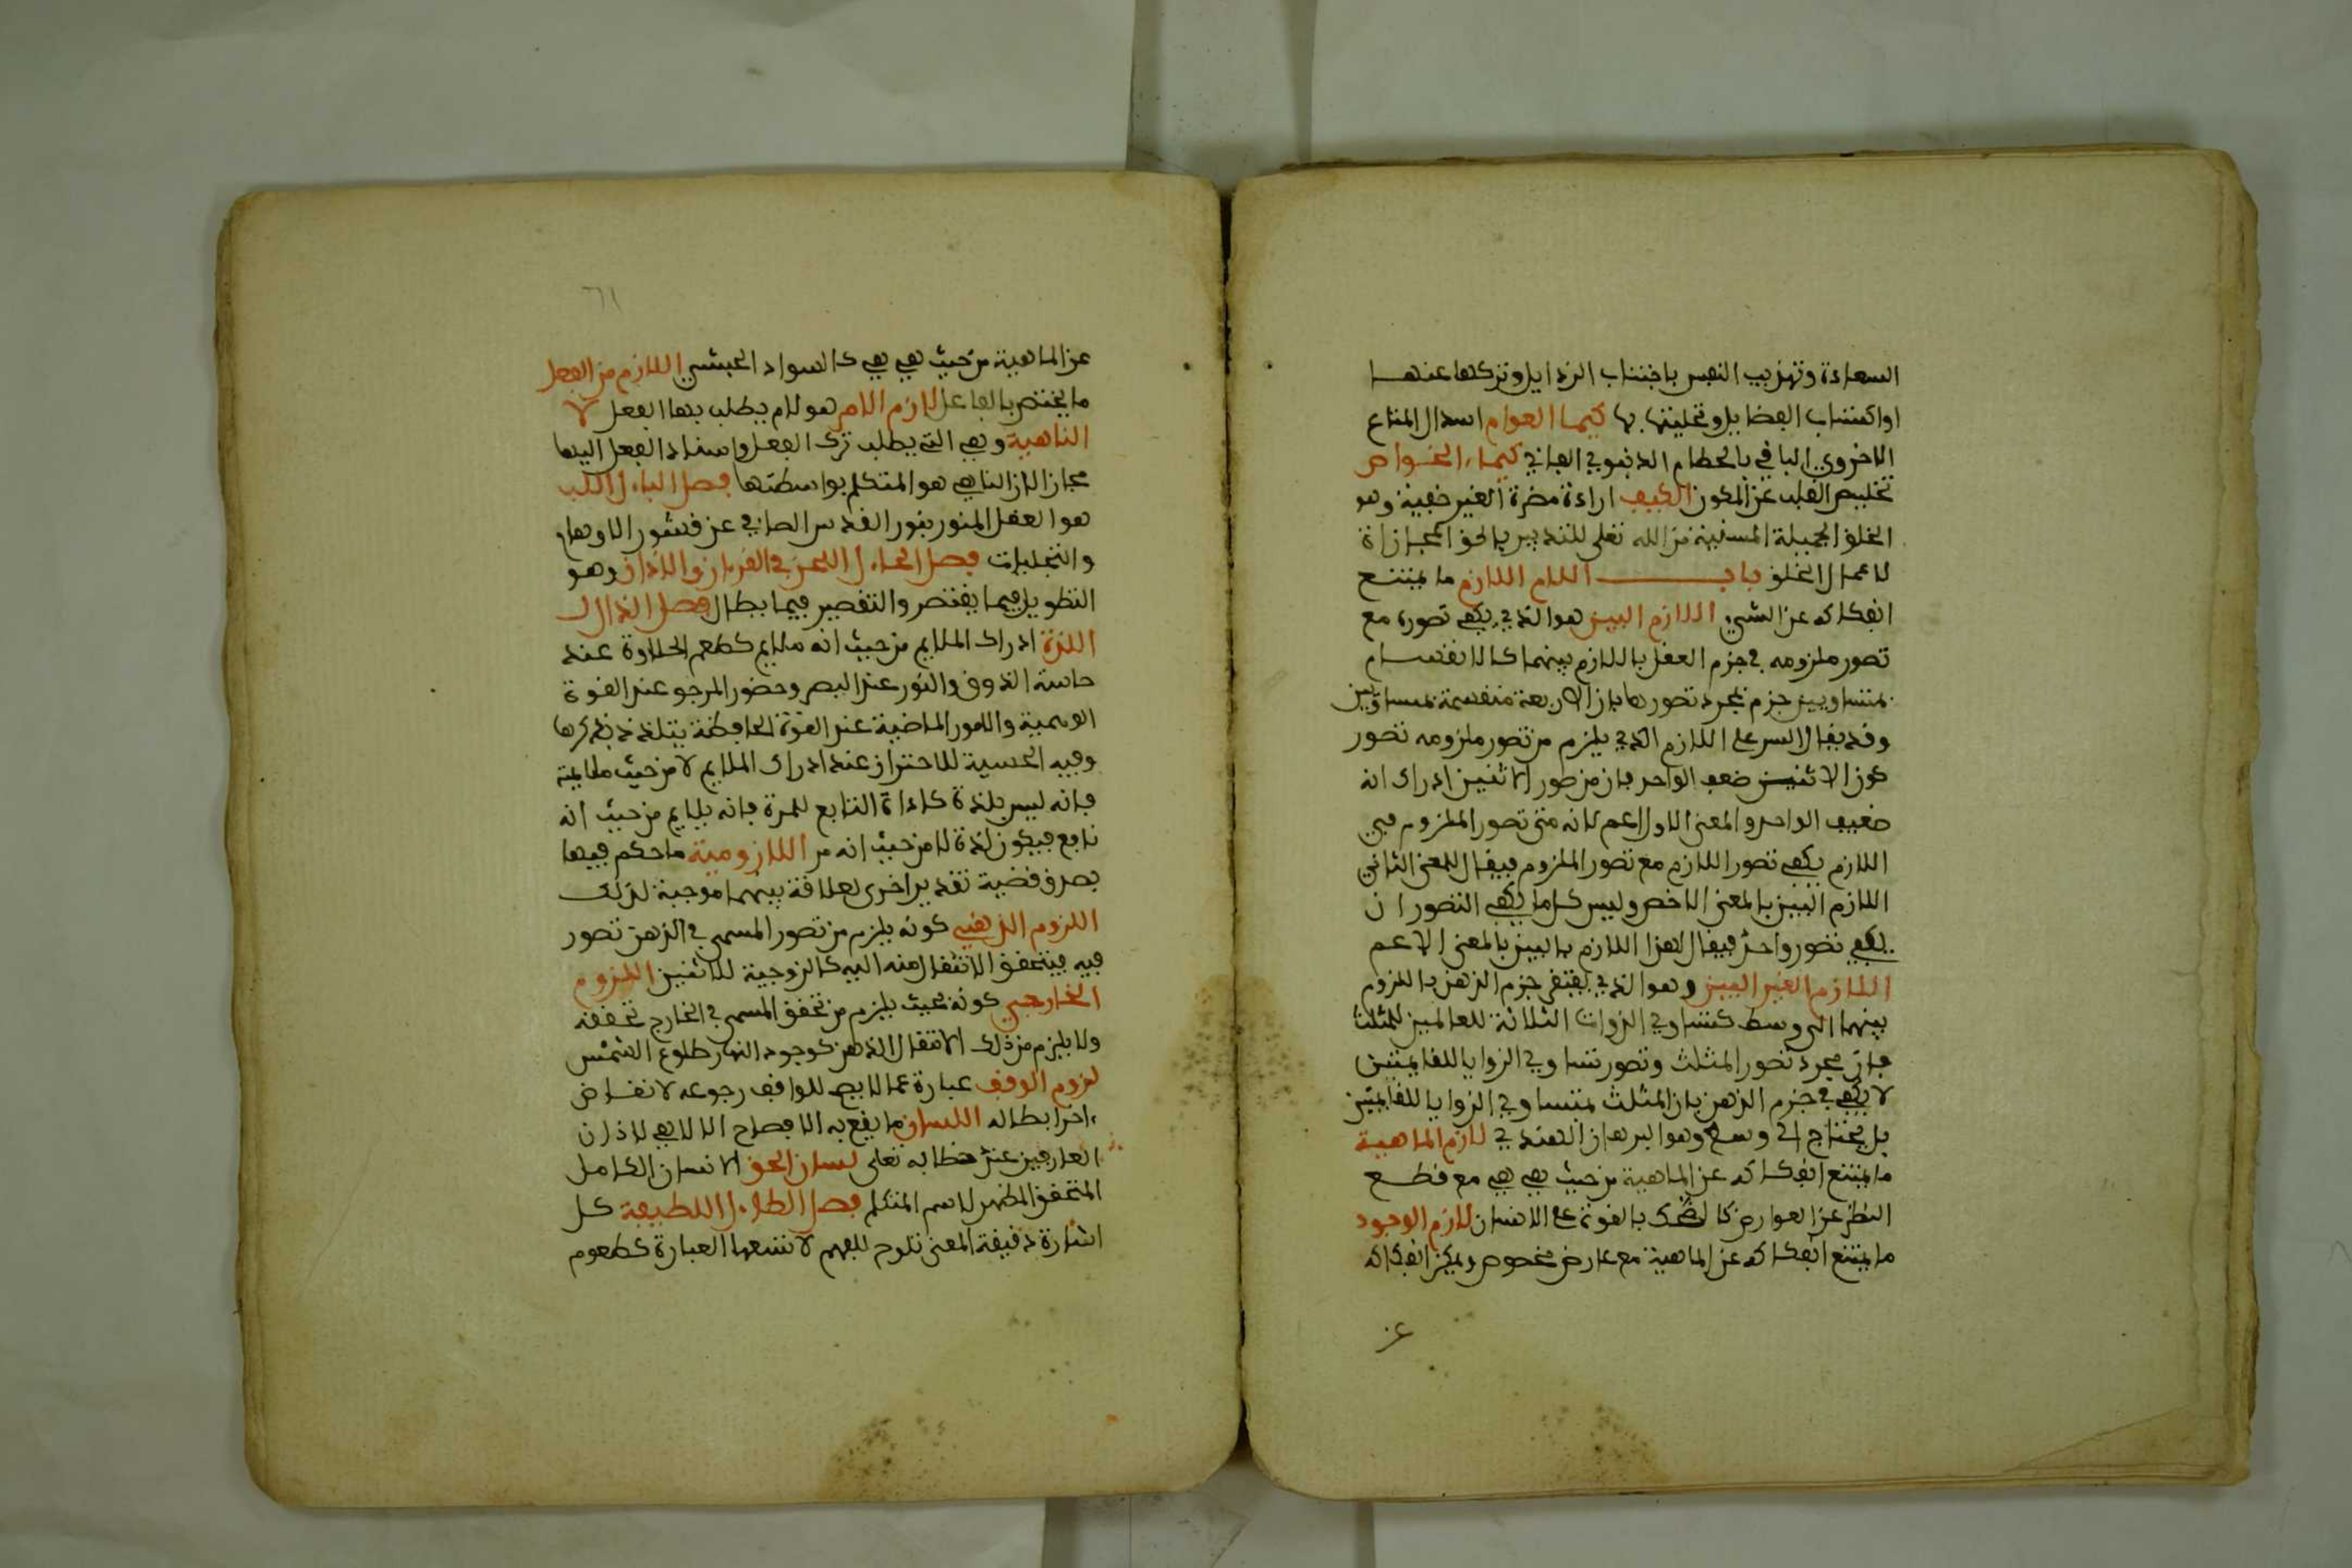 السعادة وتهذيب النفس باجتناب الرذايل وتزكها عنها
او اكتساب الفضايل وتحليتها بها كيميا العوام استبدال المتاع
الاخروي الباقي بالحطام الدنيوي الفاني كيمياء الخواص
تخليص القلب عن الكون الكيف اراءة مضرة الغير خفية وهو
الخلق الجميلة المسببة من الله تعلى للتدبير بالحق المجازاة
لاعمال الخلق باب اللام اللازم ما يمتنع
انفكاكه عن الشيء اللازم البين هو الذي يكفي تصوره مع
تصور ملزومه في جزم العقل باللازم بينهما كالانقسام
بمتساويين جزم بمجرد تصورها بان الاربعة منقسمة بمساويين
وقد يقال البين على اللازم الذي يلزم من تصور ملزومه تصور
كون الاثنين ضعف الواحد فان من صور الاثنين ادراك انه
ضعيف الواحد والمعنى الاول اعم لانه متى تصور الملزوم في
اللازم يكفي تصور اللازم مع تصور الملزوم فيقال للمعنى الثاني
اللازم البين بالمعنى الاخص وليس كلما يكفي التصور ان
يكفي تصور واحد فيقال لهذا اللازم بالبين بالمعنى الاعم
اللازم الغير البين وهو الذي يفتقر جزم الذهن باللزوم
بينهما الى وسط كتساوي الزوات الثلاثة للعالمين للمثلث
فان مجرد تصور المثلث وتصور تساوي الزوايا للقايمتين
لا يكفي في جزم الذهن بان المثلث متساوي الزوايا للقايمتين
بل يحتاج الى وسط وهو البرهان الهندي لازم الماهية
ما يمتنع انفكاكه عن الماهية من حيث هي هي مع قطع
النظر عن العوارض كالضحك بالقوة على الانسان لازم الوجود
ما يمتنع انفكاكه عن الماهية مع عارض مخصوص ويمكن انفكاكه
عن
عن الماهية من حيث هي هي كالسواد الحبشي اللازم من الفعل
ما يختص بالفاعل لازم الامر هو لام يطلب بها الفعل لا
الناهية وهي التي يطلب ترك الفعل واسناد الفعل اليها
مجاز لان الناهي هو المتكلم بواسطتها فصل الباء اللب
هو العقل المنور بنور القدس الصافي عن قشور الاوهام
والتجليات فصل الحاء اللحن في القرءان والاذان وهو
التطويل فيما يقتصر والتقصير فيما يطال فصل الذال
اللذة ادراك الملايم من حيث انه ملايم كطعم الحلاوة عند
حاسة الذوق والنور عند البصر وحضور المرجو عند القوة
الوهمية والامور الماضية عند القوة الحافظة يتلذذ بذكرها
وفيه الحسية للاحتراز عند ادراك الملايم لا من حيث ملايمة
فانه ليس بلذة كادراة النابع للمرة فانه يلايم من حيث انه
نافع فيكون لذة لا من حيث انه مر اللازومية ما حكم فيها
بصدق قضية تقدير اخرى لعلاقة بينهما موجبة لذلك
اللزوم الذهني كونه يلزم من تصور المسمى في الذهن تصور
فيه فيتحقق الانتقال منه اليه كالزوجية للاثنين اللزوم
الخارجي كونه بحيث يلزم من تحقق المسمى في الخارج تحققه
ولا يلزم من ذلك الانتقال الذهن كوجود النهار طلوع الشمس
لزوم الوقف عبارة عما لا يصح للواقف رجوعه لا تقاض
ءاخر ابطاله اللسان ما يقع به الافصاح الالاهي لاذان
العارفين عند خطابه تعلى لسان الحق الانسان الكامل
المتحقق المظهر لاسم المتكلم فصل الطاء اللطيفة كل
اشارة دقيقة المعنى تلوح للفهم لا تسعها العبارة كطعوم